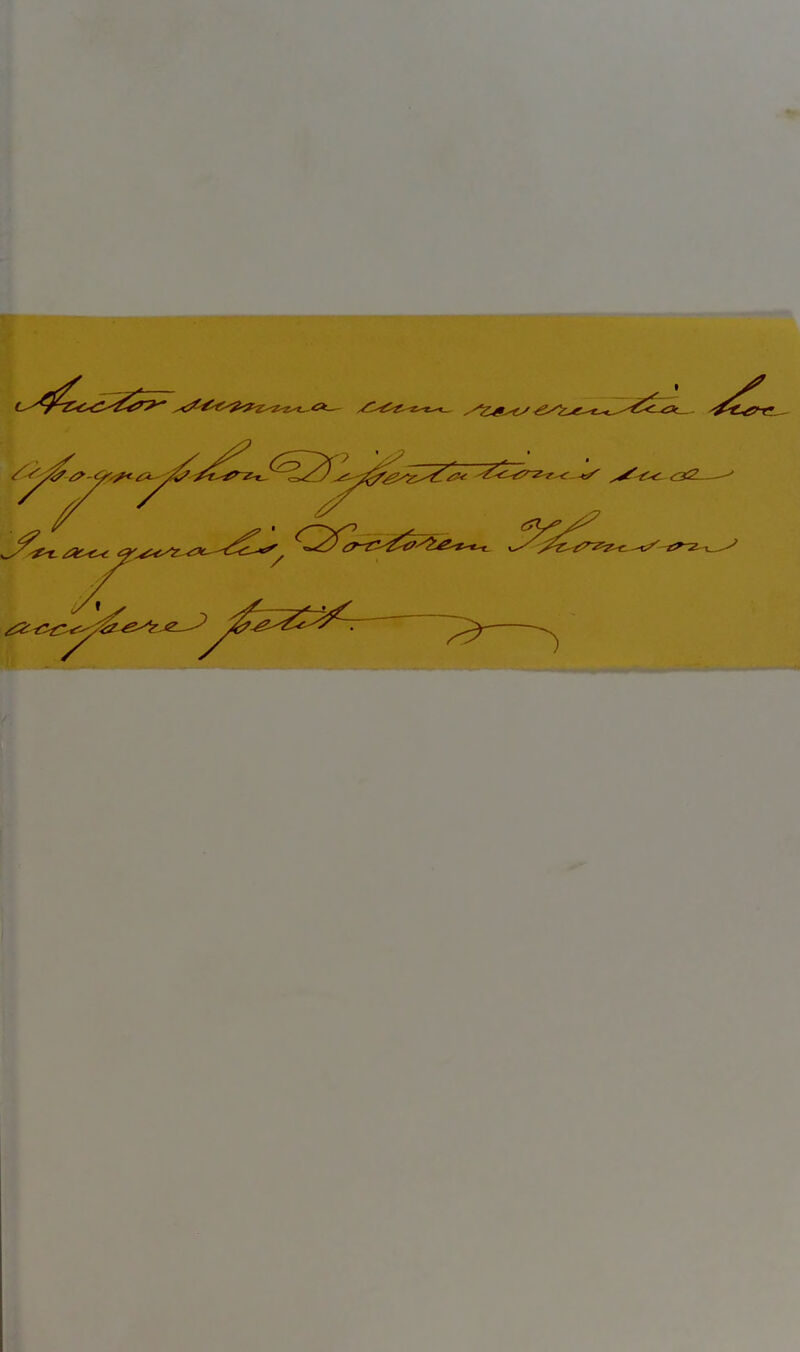 Auctor summa cum reverentia hoc
apographon Dissertationis suæ
Inauguralis, Doctorem Thomson
accipere petit.